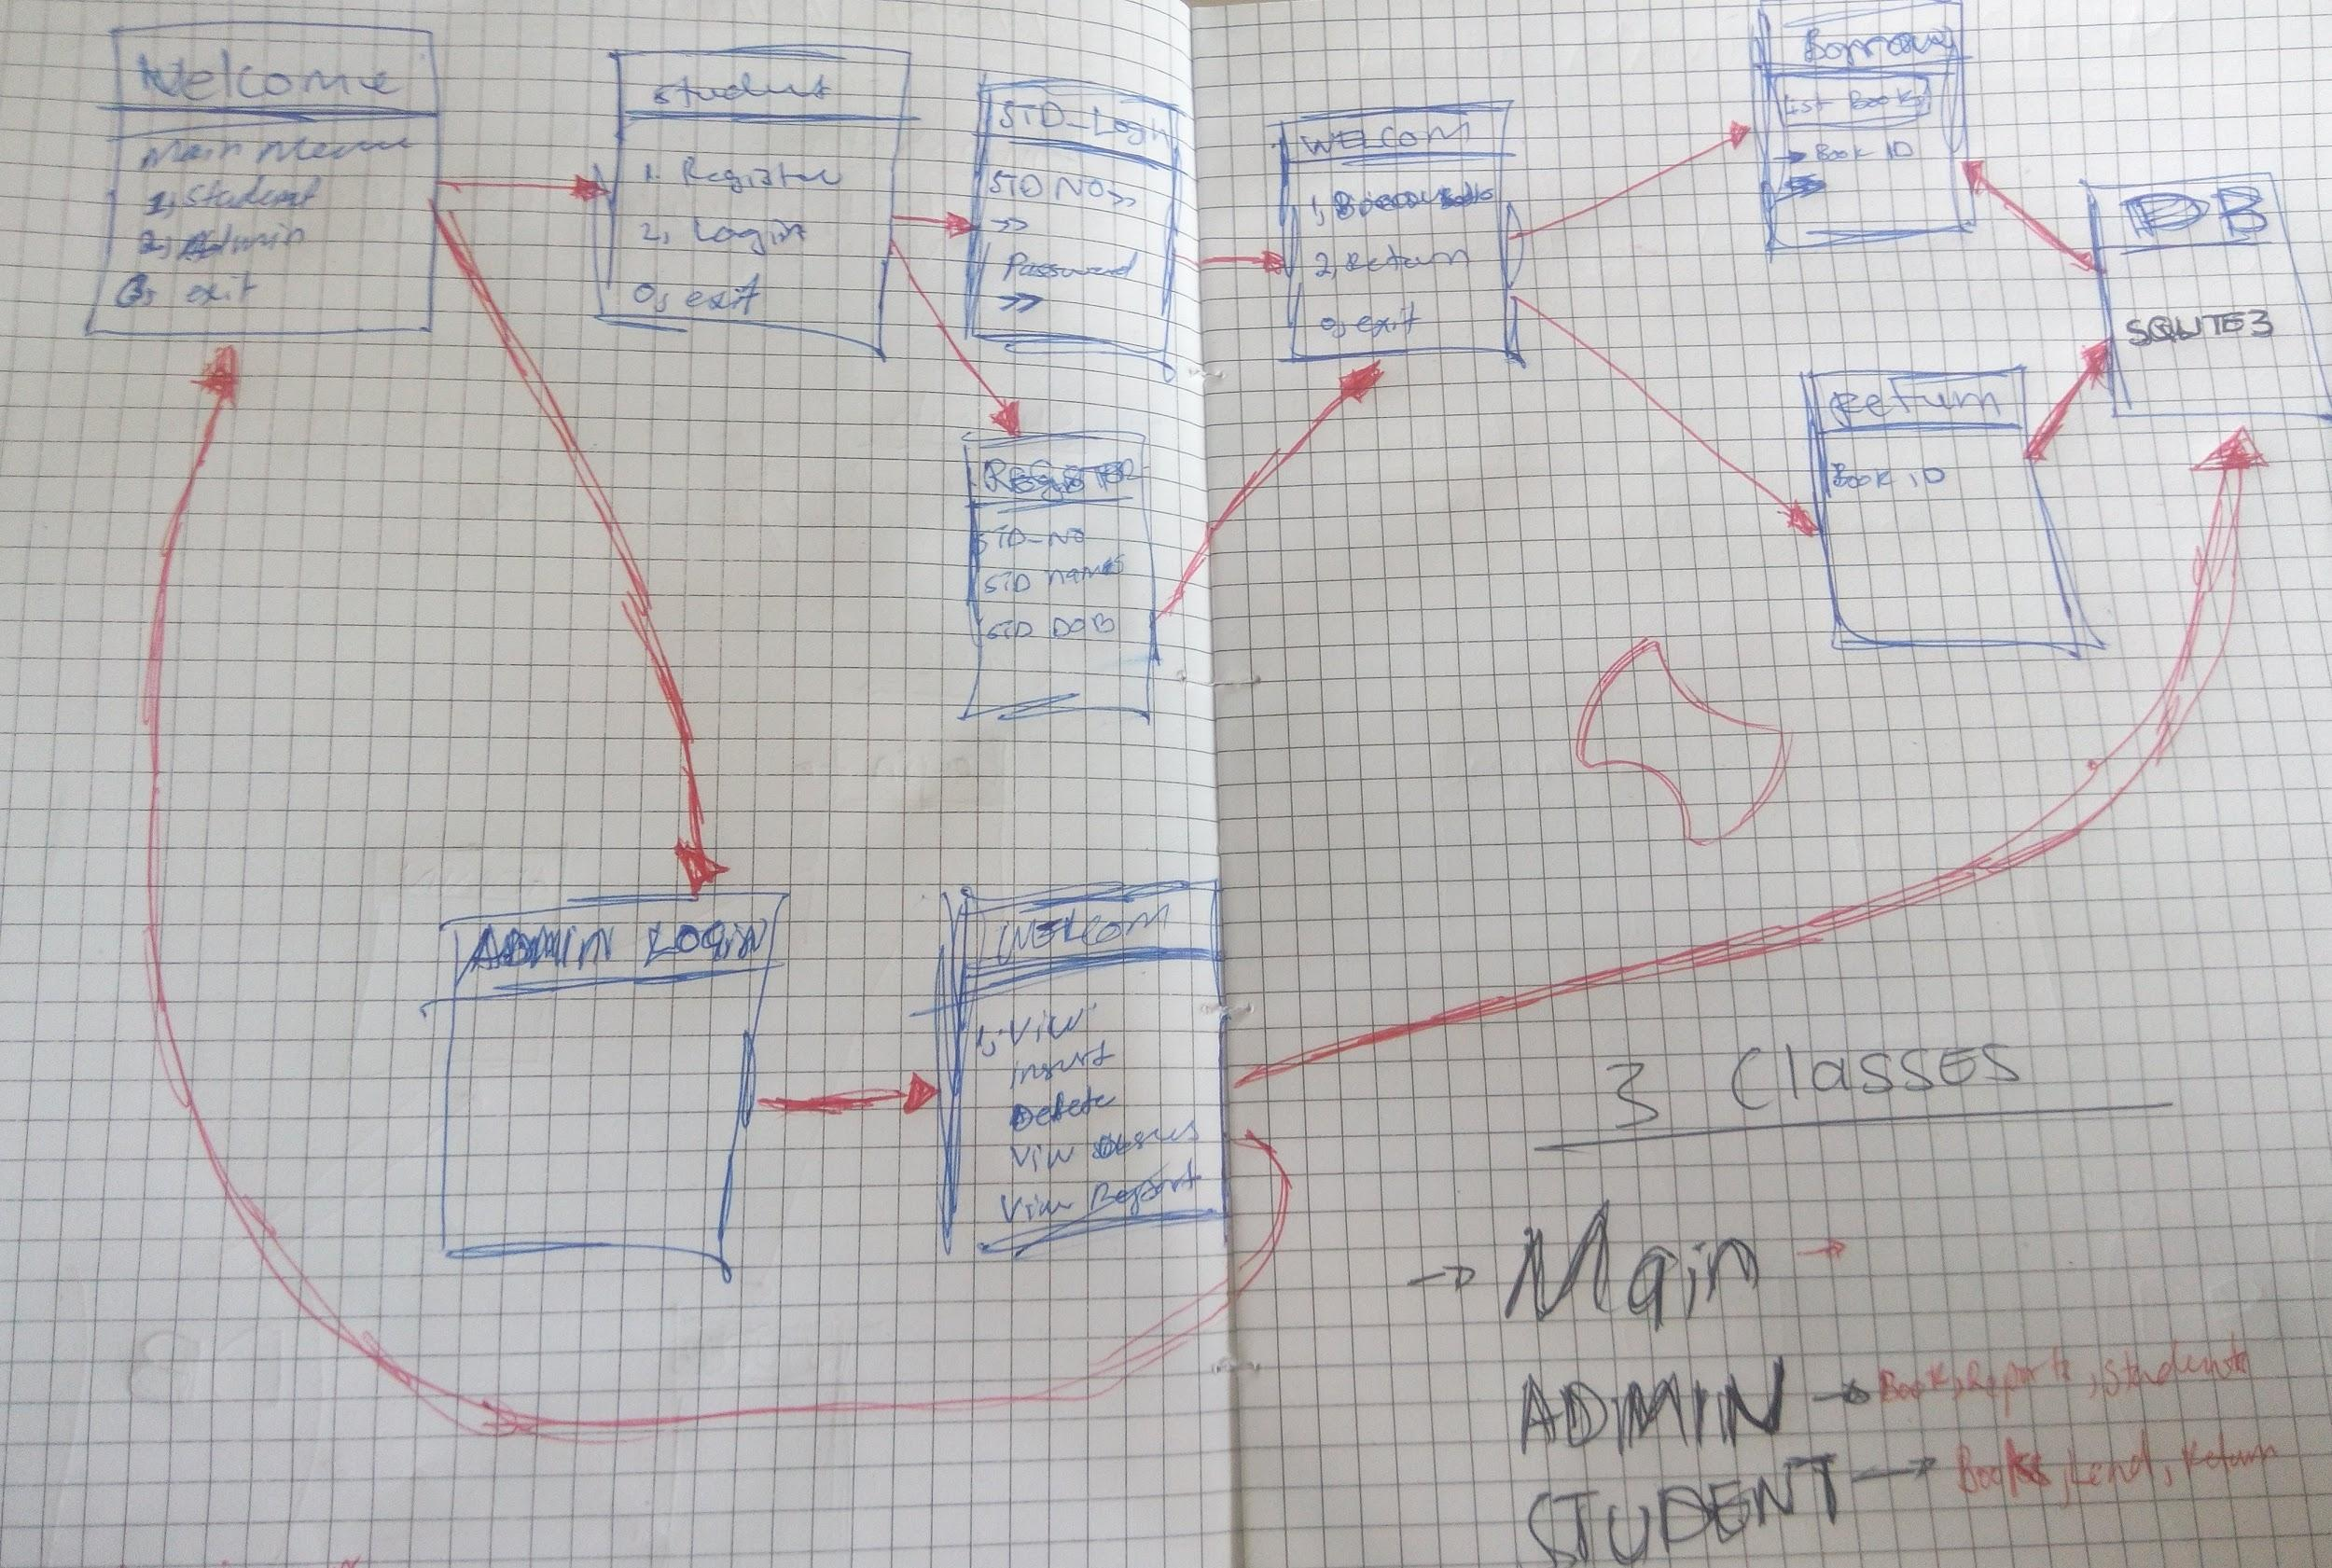 Welcome
Main Menu
1, Student
2, Admin
0, exit
Student
1. Register
2, Login
0, exit
STD_Login
STD NO>>
>>
Password
>>
REGISTER
STD_NO
STD names
STD DOB
WELCOM
2, Return
0, exit
Borrow
List Books
→ Book ID
DB
SQLITE3
Return
Book ID
ADMIN LOGIN
WELCOM
1, View
insert
Delete
View
View Report
3 Classes
→ Main →
ADMIN → Books, Reports, Students
STUDENT → Books, Lend, Return